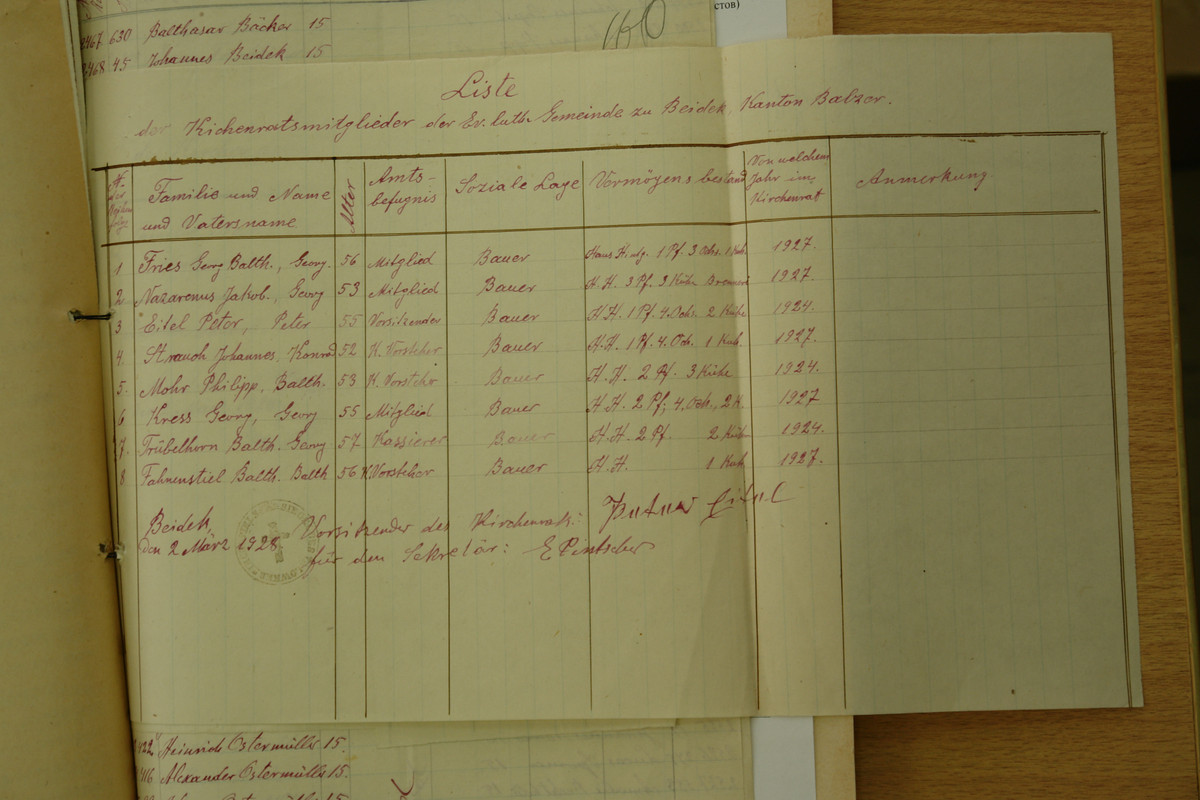 2467 630 Balthasar Bäcker 15
2468 45 Johannes Beidek 15
160
стов)
Liste
der Kichenratsmitglieder der Ev. luth. Gemeinde zu Beidek, Kanton Balzer.
Familie und Name und Vatersname Alter Amts-befugnis Soziale Lage Vermögens bestand Von welchem Jahr im Kirchenrat Anmerkung
1 Fries Georg Balth., Georg. 56 Mitglied Bauer Haus Hndg. 1 Pf. 3 Ochs. 1 Kuh. 1927.
2 Nazarenus Jakob., Georg 53 Mitglied Bauer H. H. 3 Pf. 3 Kühe 1927.
3 Eitel Peter, Peter 55 Vorsitzender Bauer H. H. 1 Pf. 4. Ochs. 2 Kühe 1924.
4. Strauch Johannes, Konrad 52 K. Vorsteher Bauer H. H. 1 Pf. 4. Och. 1 Kuh. 1927.
5. Mohr Philipp, Balth. 53 K. Vorstehr Bauer H. H. 2 Pf. 3 Kühe 1924.
6 Kress Georg, Georg 55 Mitglied Bauer H. H. 2 Pf; 4. Och., 2 K. 1927
7. Trübelhorn Balth. Georg 57 Kassierer Bauer H. H. 2 Pf. 2 Kühe 1924.
8 Fahnenstiel Balth. Balth 56 K. Vorsteher Bauer H. H. 1 Kuh 1927.
Beidek,
den 2 März 1928
Vorsitzender des Kirchenrats: Peter Eitel
für den Sekretär: E Pintscher
Heinrich Ostermüller 15.
Alexander Ostermüller 15.